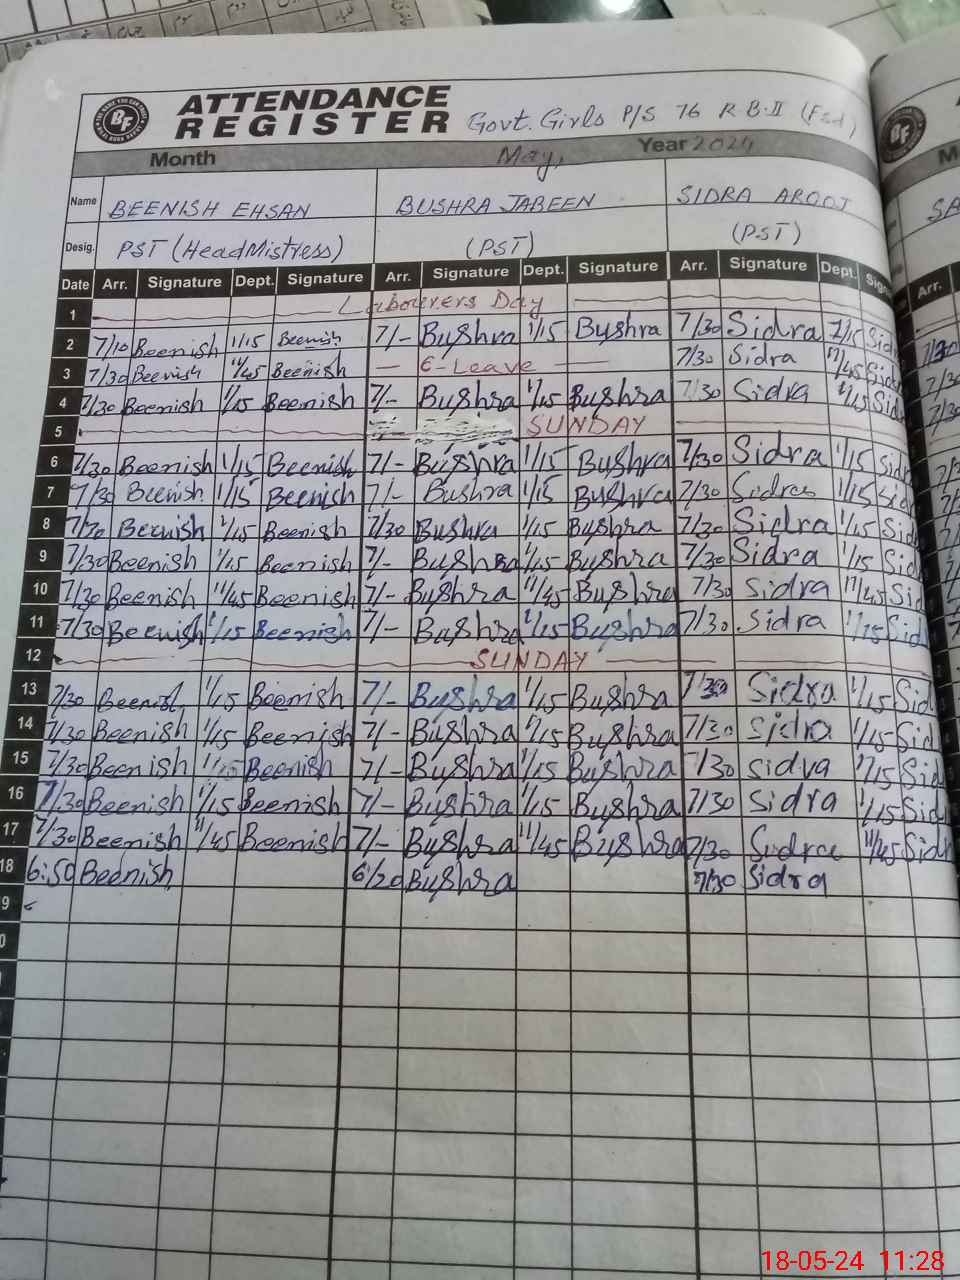 ATTENDANCE
REGISTER Govt. Girls P/S 76 R.B-II (Fsd)
Month May, Year 2024
Name BEENISH EHSAN BUSHRA JABEEN SIDRA AROOJ
Desig. PST (HeadMistress) (PST) (PST)
Date Arr. Signature Dept. Signature Arr. Signature Dept. Signature Arr. Signature Dept. Arr.
1 Labourers Day
2 7/10 Beenish 1/15 Beenish 7/- Bushra 1/15 Bushra 7/30 Sidra 1/15 Sidra
3 7/30 Beenish 11/45 Beenish - E-Leave - 7/30 Sidra 11/45 Sidra
4 7/30 Beenish 1/15 Beenish 7/- Bushra 1/15 Bushra 7/30 Sidra 1/15 Sid
5 SUNDAY
6 7/30 Beenish 1/15 Beenish 7/- Bushra 1/15 Bushra 7/30 Sidra 1/15 Sidr
7 7/30 Beenish 1/15 Beenish 7/- Bushra 1/15 Bushra 7/30 Sidra 1/15 Sid
8 7/30 Beenish 1/15 Beenish 7/30 Bushra 1/15 Bushra 7/30 Sidra 1/15 Sid
9 7/30 Beenish 1/15 Beenish 7/- Bushra 1/15 Bushra 7/30 Sidra 1/15 Sid
10 7/30 Beenish 11/45 Beenish 7/- Bushra 11/45 Bushra 7/30 Sidra 11/45 Sid
11 7/30 Beenish 1/15 Beenish 7/- Bushra 1/15 Bushra 7/30 Sidra 1/15 Sid
12 SUNDAY
13 7/30 Beenish 1/15 Beenish 7/- Bushra 1/15 Bushra 7/30 Sidra 1/15 Sid
14 7/30 Beenish 1/15 Beenish 7/- Bushra 1/15 Bushra 7/30 Sidra 1/15 Sid
15 7/30 Beenish 1/15 Beenish 7/- Bushra 1/15 Bushra 7/30 Sidra 1/15 Sid
16 7/30 Beenish 1/15 Beenish 7/- Bushra 1/15 Bushra 7/30 Sidra 1/15 Sid
17 7/30 Beenish 11/45 Beenish 7/- Bushra 11/45 Bushra 7/30 Sidra 11/45 Sidr
18 6:50 Beenish 6/20 Bushra 7/30 Sidra
9
0
18-05-24 11:28